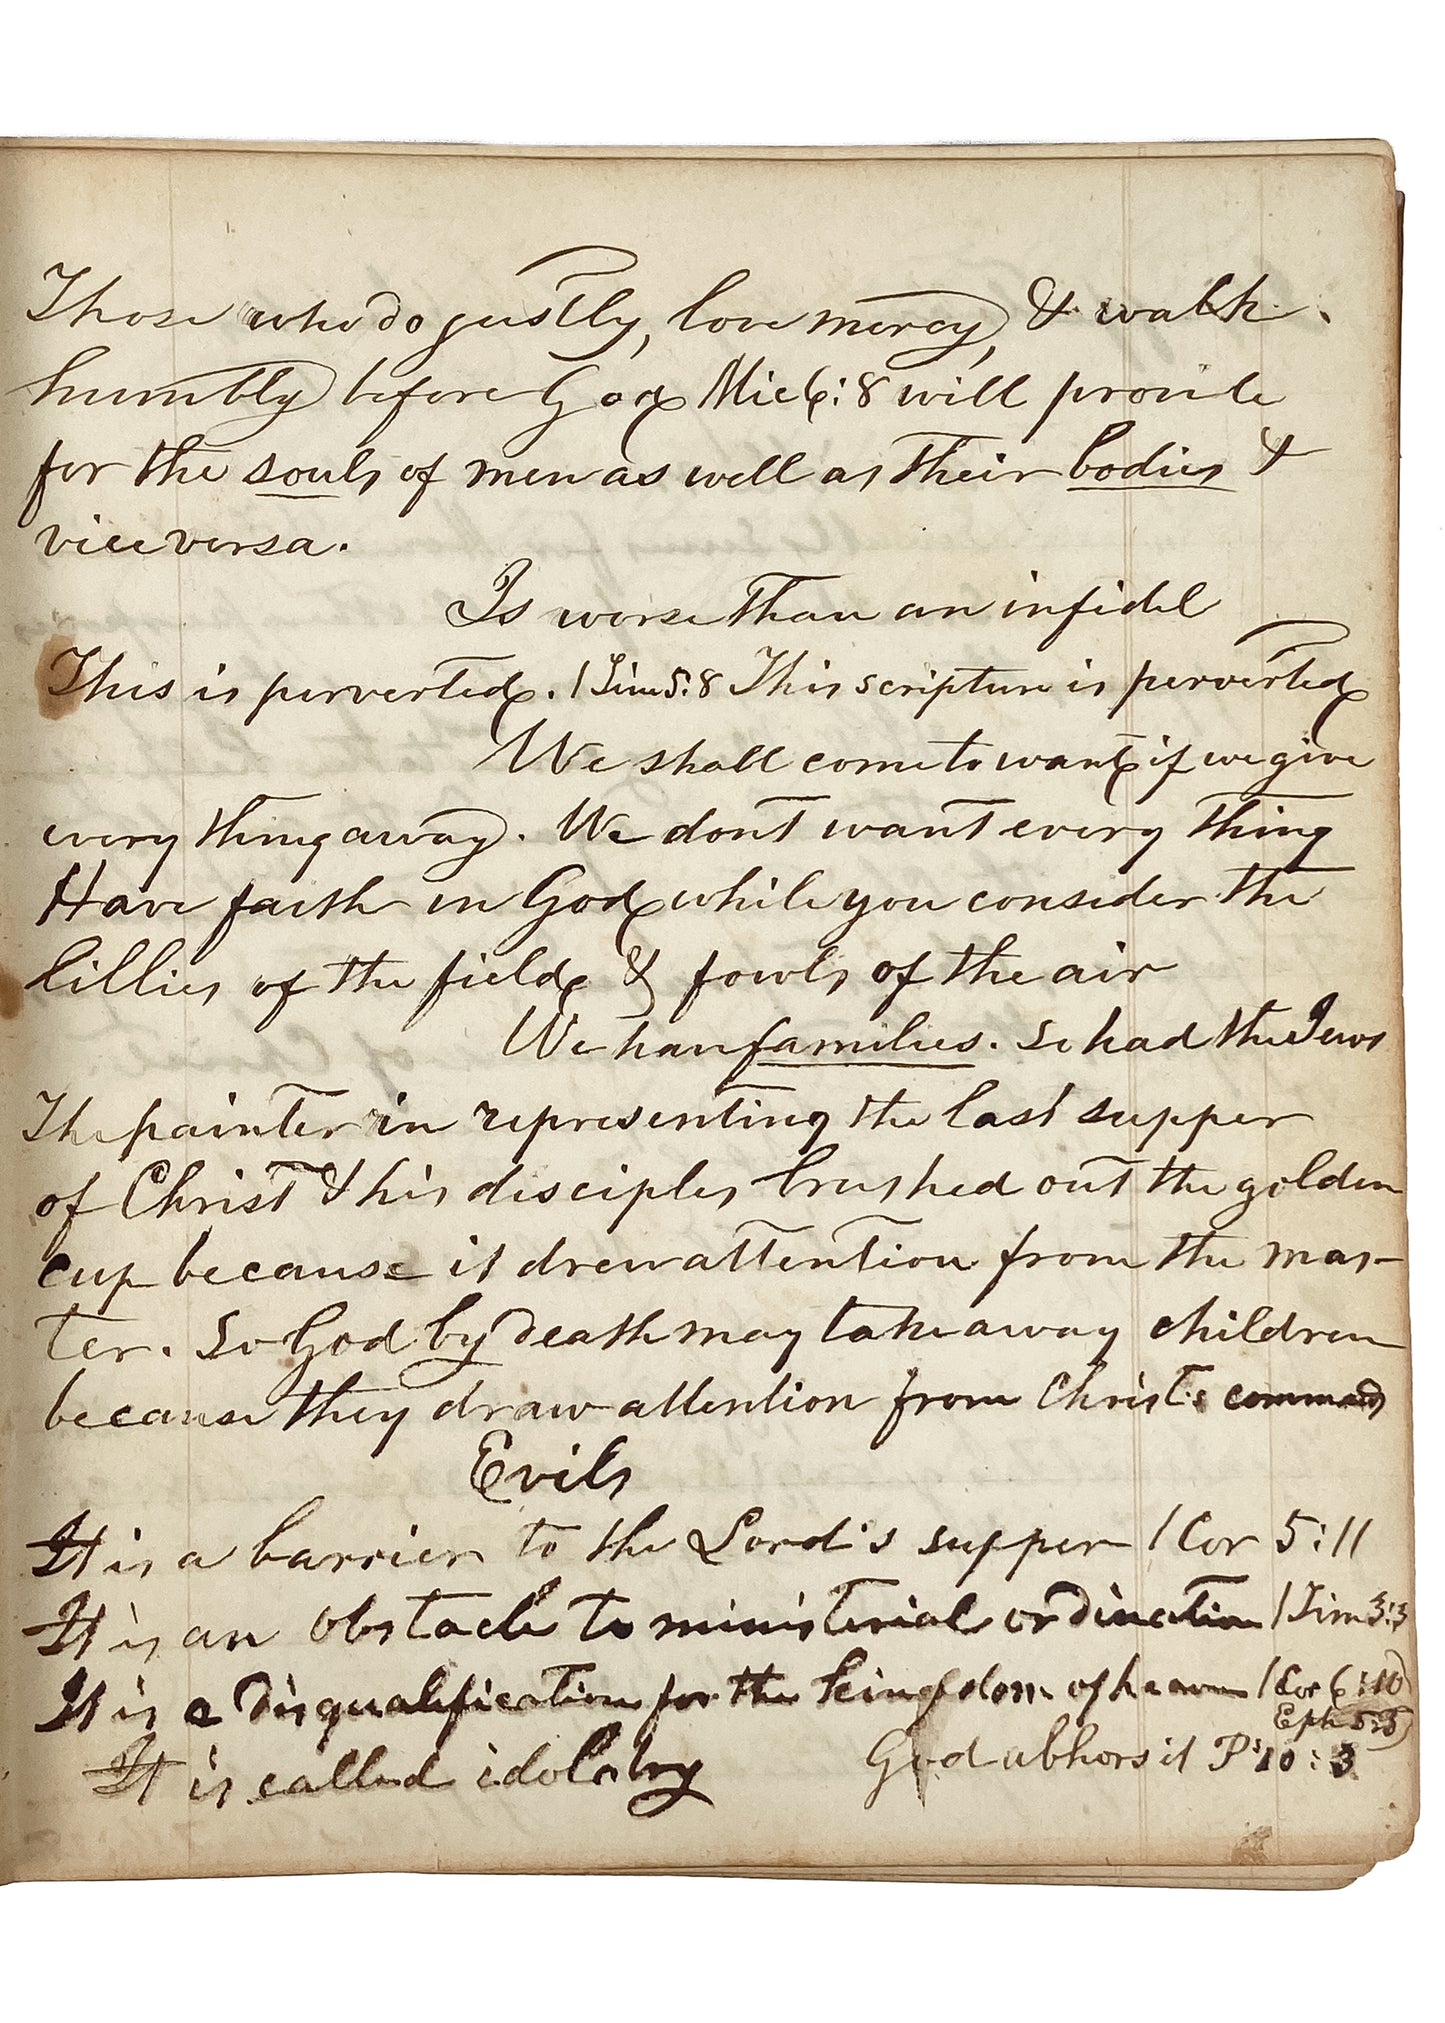 Those who do justly, love mercy, & walk
humbly before God Mic 6:8 will provide
for the souls of men as well as their bodies &
vice versa.
Is worse than an infidel
This is perverted. 1 Tim 5:8 This scripture is perverted
We shall come to want if we give
every thing away. We dont want every thing
Have faith in God while you consider the
lillies of the field & fowls of the air
We have families. So had the Jews
The painter in representing the last supper
of Christ & his disciples brushed out the golden
cup because it drew attention from the mas-
ter. So God by death may take away children
because they draw attention from Christs command
Evils
It is a barrier to the Lord's supper 1 Cor 5:11
It is an obstacle to ministerial ordination 1 Tim 3:3
It is a disqualification for the kingdom of heaven 1 Cor 6:10
Eph 5:5
It is called idolatry God abhors it Ps 10:3